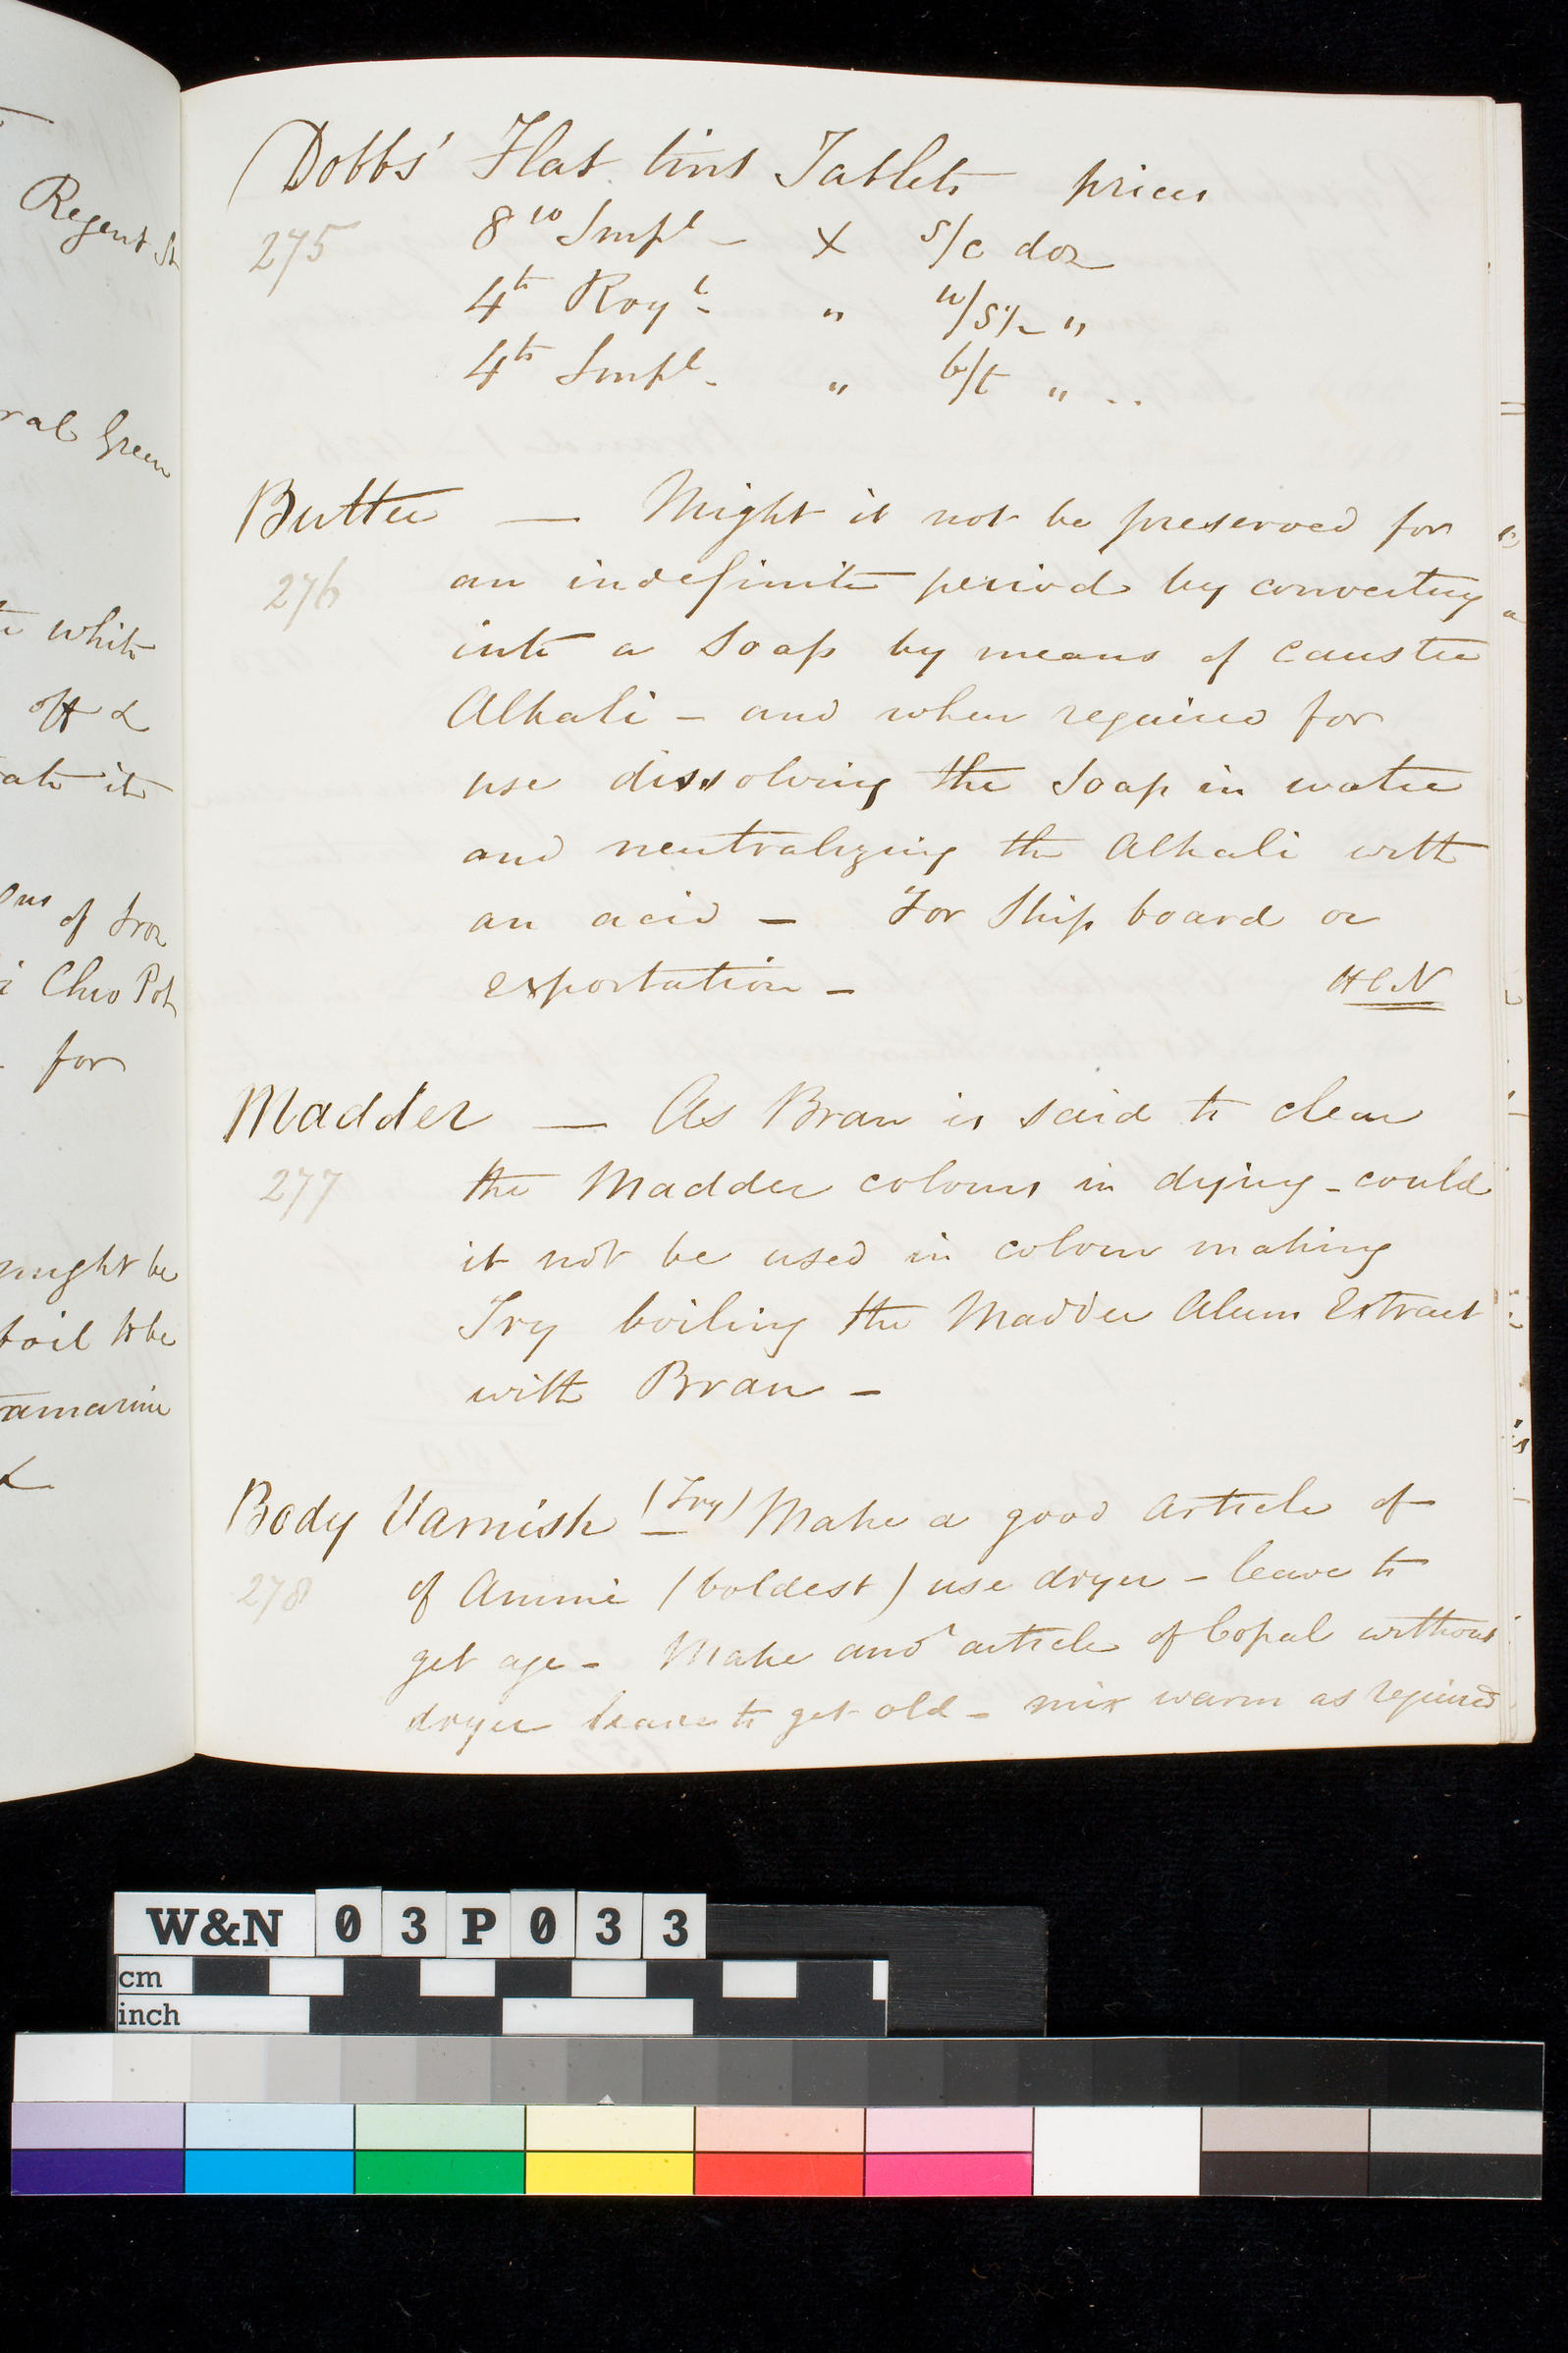 Regent St
ral Green
white
off &
ate it
of Iron
Chro Pot
for
might be
boil to be
tramarine
&
Dobbs' Flat tint Tablets prices
275
8to Impl - X s/c doz
4to Royl - " u/s½ "
4to Impl - " b/t " ..
Butter — Might it not be preserved for
276
an indefinite period by converting
into a Soap by means of Caustic
Alkali - and when required for
use dissolving the Soap in water
and neutralizing the Alkali with
an acid - For Ship board or
exportation -
HCN
Madder — As Bran is said to clear
277
the Madder colours in dying - could
it not be used in colour making
Try boiling the Madder Alum Extract
with Bran -
Body Varnish (Try) Make a good article of
278
of Anime (boldest) use dryer - leave to
get age - Make anor article of Copal without
dryer leave to get old - mix warm as required
W&N 03P033
cm
inch